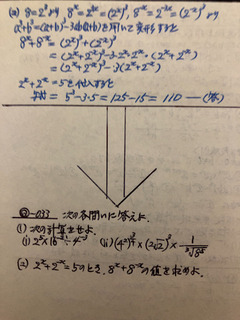 (2) 8=2³より 8ˣ=2³ˣ=(2ˣ)³, 8⁻ˣ=2⁻³ˣ=(2⁻ˣ)³ より
a³+b³=(a+b)³-3ab(a+b)を用いて変形すると
8ˣ+8⁻ˣ=(2ˣ)³+(2⁻ˣ)³
=(2ˣ+2⁻ˣ)³-3・2ˣ・2⁻ˣ・(2ˣ+2⁻ˣ)
=(2ˣ+2⁻ˣ)³-3(2ˣ+2⁻ˣ)
2ˣ+2⁻ˣ=5を代入すると
与式=5³-3・5=125-15=110 —(答)
-033 次の各問いに答えよ.
(1) 次の計算をせよ.
(i) 2⁵×16⁻²÷4⁻³ (ii)
(2) 2ˣ+2⁻ˣ=5のとき, 8ˣ+8⁻ˣの値を求めよ.